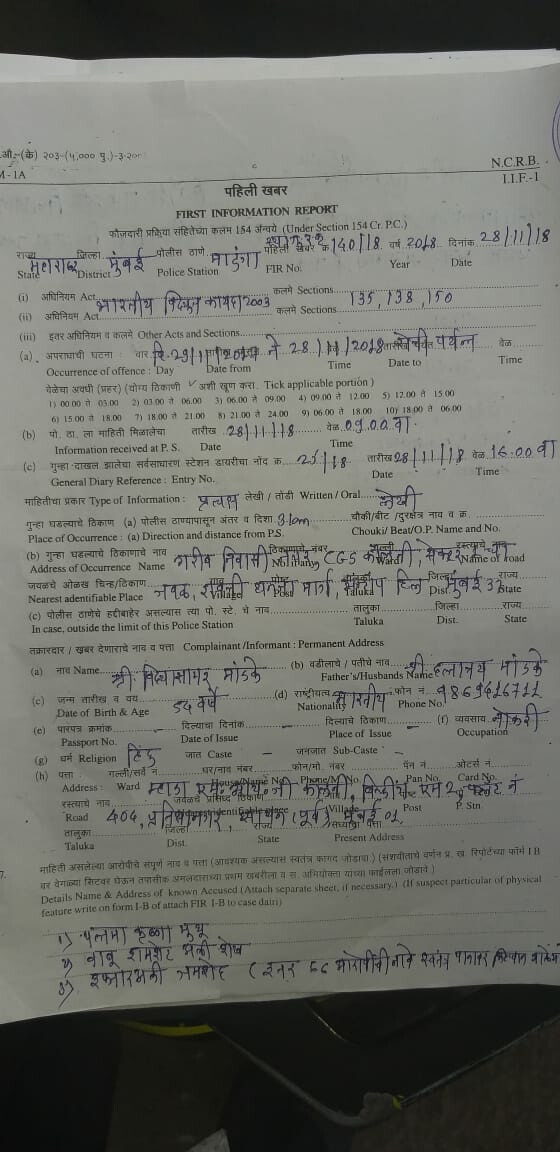 औ.-(के) २०३-(५,००० पु.)-३-२०
M-1A
N.C.R.B.
I.I.F.-1
पहिली खबर
FIRST INFORMATION REPORT
फौजदारी प्रक्रिया संहितेच्या कलम 154 अन्वये (Under Section 154 Cr. P.C.)
राज्य महाराष्ट्र जिल्हा मुंबई पोलीस ठाणे पहिली खबर क्र 140/18 वर्ष 2018 दिनांक 28/11/18
State District Police Station FIR No. Year Date
(i) अधिनियम Act भारतीय विद्युत कायदा 2003 कलमे Sections 135, 138, 150
(ii) अधिनियम Act कलमे Sections
(iii) इतर अधिनियम व कलमे Other Acts and Sections
(a) अपराधाची घटना : वार दि. ने 28/11/2018 पर्यंत वेळ
Occurrence of offence : Day Date from Time Date to Time
वेळेचा अवधी (प्रहर) (योग्य ठिकाणी ✓ अशी खूण करा. Tick applicable portion)
1) 00.00 ते 03.00 2) 03.00 ते 06.00 3) 06.00 ते 09.00 4) 09.00 ते 12.00 5) 12.00 ते 15.00
6) 15.00 ते 18.00 7) 18.00 ते 21.00 8) 21.00 ते 24.00 9) 06.00 ते 18.00 10) 18.00 ते 06.00
(b) पो. ठा. ला माहिती मिळालेचा तारीख 28/11/18 वेळ 09.00 वा.
Information received at P. S. Date Time
(c) गुन्हा दाखल झालेचा सर्वसाधारण स्टेशन डायरीचा नोंद क्र. तारीख 28/11/18 वेळ 16.00 वा
General Diary Reference : Entry No. Date Time
माहितीचा प्रकार Type of Information : प्रत्यक्ष लेखी / तोंडी Written / Oral लेखी
गुन्हा घडल्याचे ठिकाण (a) पोलीस ठाण्यापासून अंतर व दिशा चौकी/बीट /दुरक्षेत्र नाव व क्र.
Place of Occurrence : (a) Direction and distance from P.S. Chouki/ Beat/O.P. Name and No.
(b) गुन्हा घडल्याचे ठिकाणाचे नाव गरीब निवासी CGS कॉलनी, सेक्टर
Address of Occurrence Name Name of road
जवळचे ओळख चिन्ह/ठिकाण मार्ग, हिल मुंबई 37
Nearest adentifiable Place Village Post Taluka Dist. State
(c) पोलीस ठाणेचे हद्दीबाहेर असल्यास त्या पो. स्टे. चे नाव तालुका जिल्हा राज्य
In case, outside the limit of this Police Station Taluka Dist. State
तक्रारदार / खबर देणाराचे नाव व पत्ता Complainant/Informant : Permanent Address
(a) नाव Name श्री. विद्यासागर मांडके (b) वडीलाचे / पतीचे नाव श्री. मांडके
Father's/Husbands Name
(c) जन्म तारीख व वय 54 वर्षे (d) राष्ट्रीयत्व भारतीय फोन नं.
Date of Birth & Age Nationality Phone No.
(e) पारपत्र क्रमांक दिल्याचा दिनांक दिल्याचे ठिकाण (f) व्यवसाय नोकरी
Passport No. Date of Issue Place of Issue Occupation
(g) धर्म Religion हिंदू जात Caste – जनजात Sub-Caste –
(h) पत्ता गल्ली/सर्वे नं घर/नाव नंबर फोन/मो. नंबर पॅन नं ओटर्स नं.
Address : Ward म्हाडा कॉलनी, बिल्डींग Pan No. Card No.
रस्त्याचे नाव
Road 404, प्रतिक्षानगर, सायन (पूर्व) मुंबई Village Post P. Stn.
तालुका जिल्हा राज्य सध्याचा पत्ता
Taluka Dist. State Present Address
7. माहिती असलेल्या आरोपीचे संपूर्ण नाव व पत्ता (आवश्यक असल्यास स्वतंत्र कागद जोडावा.) (संशयीताचे वर्णन प्र. ख. रिपोर्टच्या फॉर्म I B
वर वेगळ्या सिटवर घेऊन तपासीक अमलदाराच्या प्रथम खबरीला व स. अभियोक्ता यांच्या फाईलला जोडावे.)
Details Name & Address of known Accused (Attach separate sheet, if necessary.) (If suspect particular of physical
feature write on form I-B of attach FIR I-B to case dairi)
1)
2) बाबू अली शेख
3) (इतर 66 आरोपींची नावे स्वतंत्र पानावर